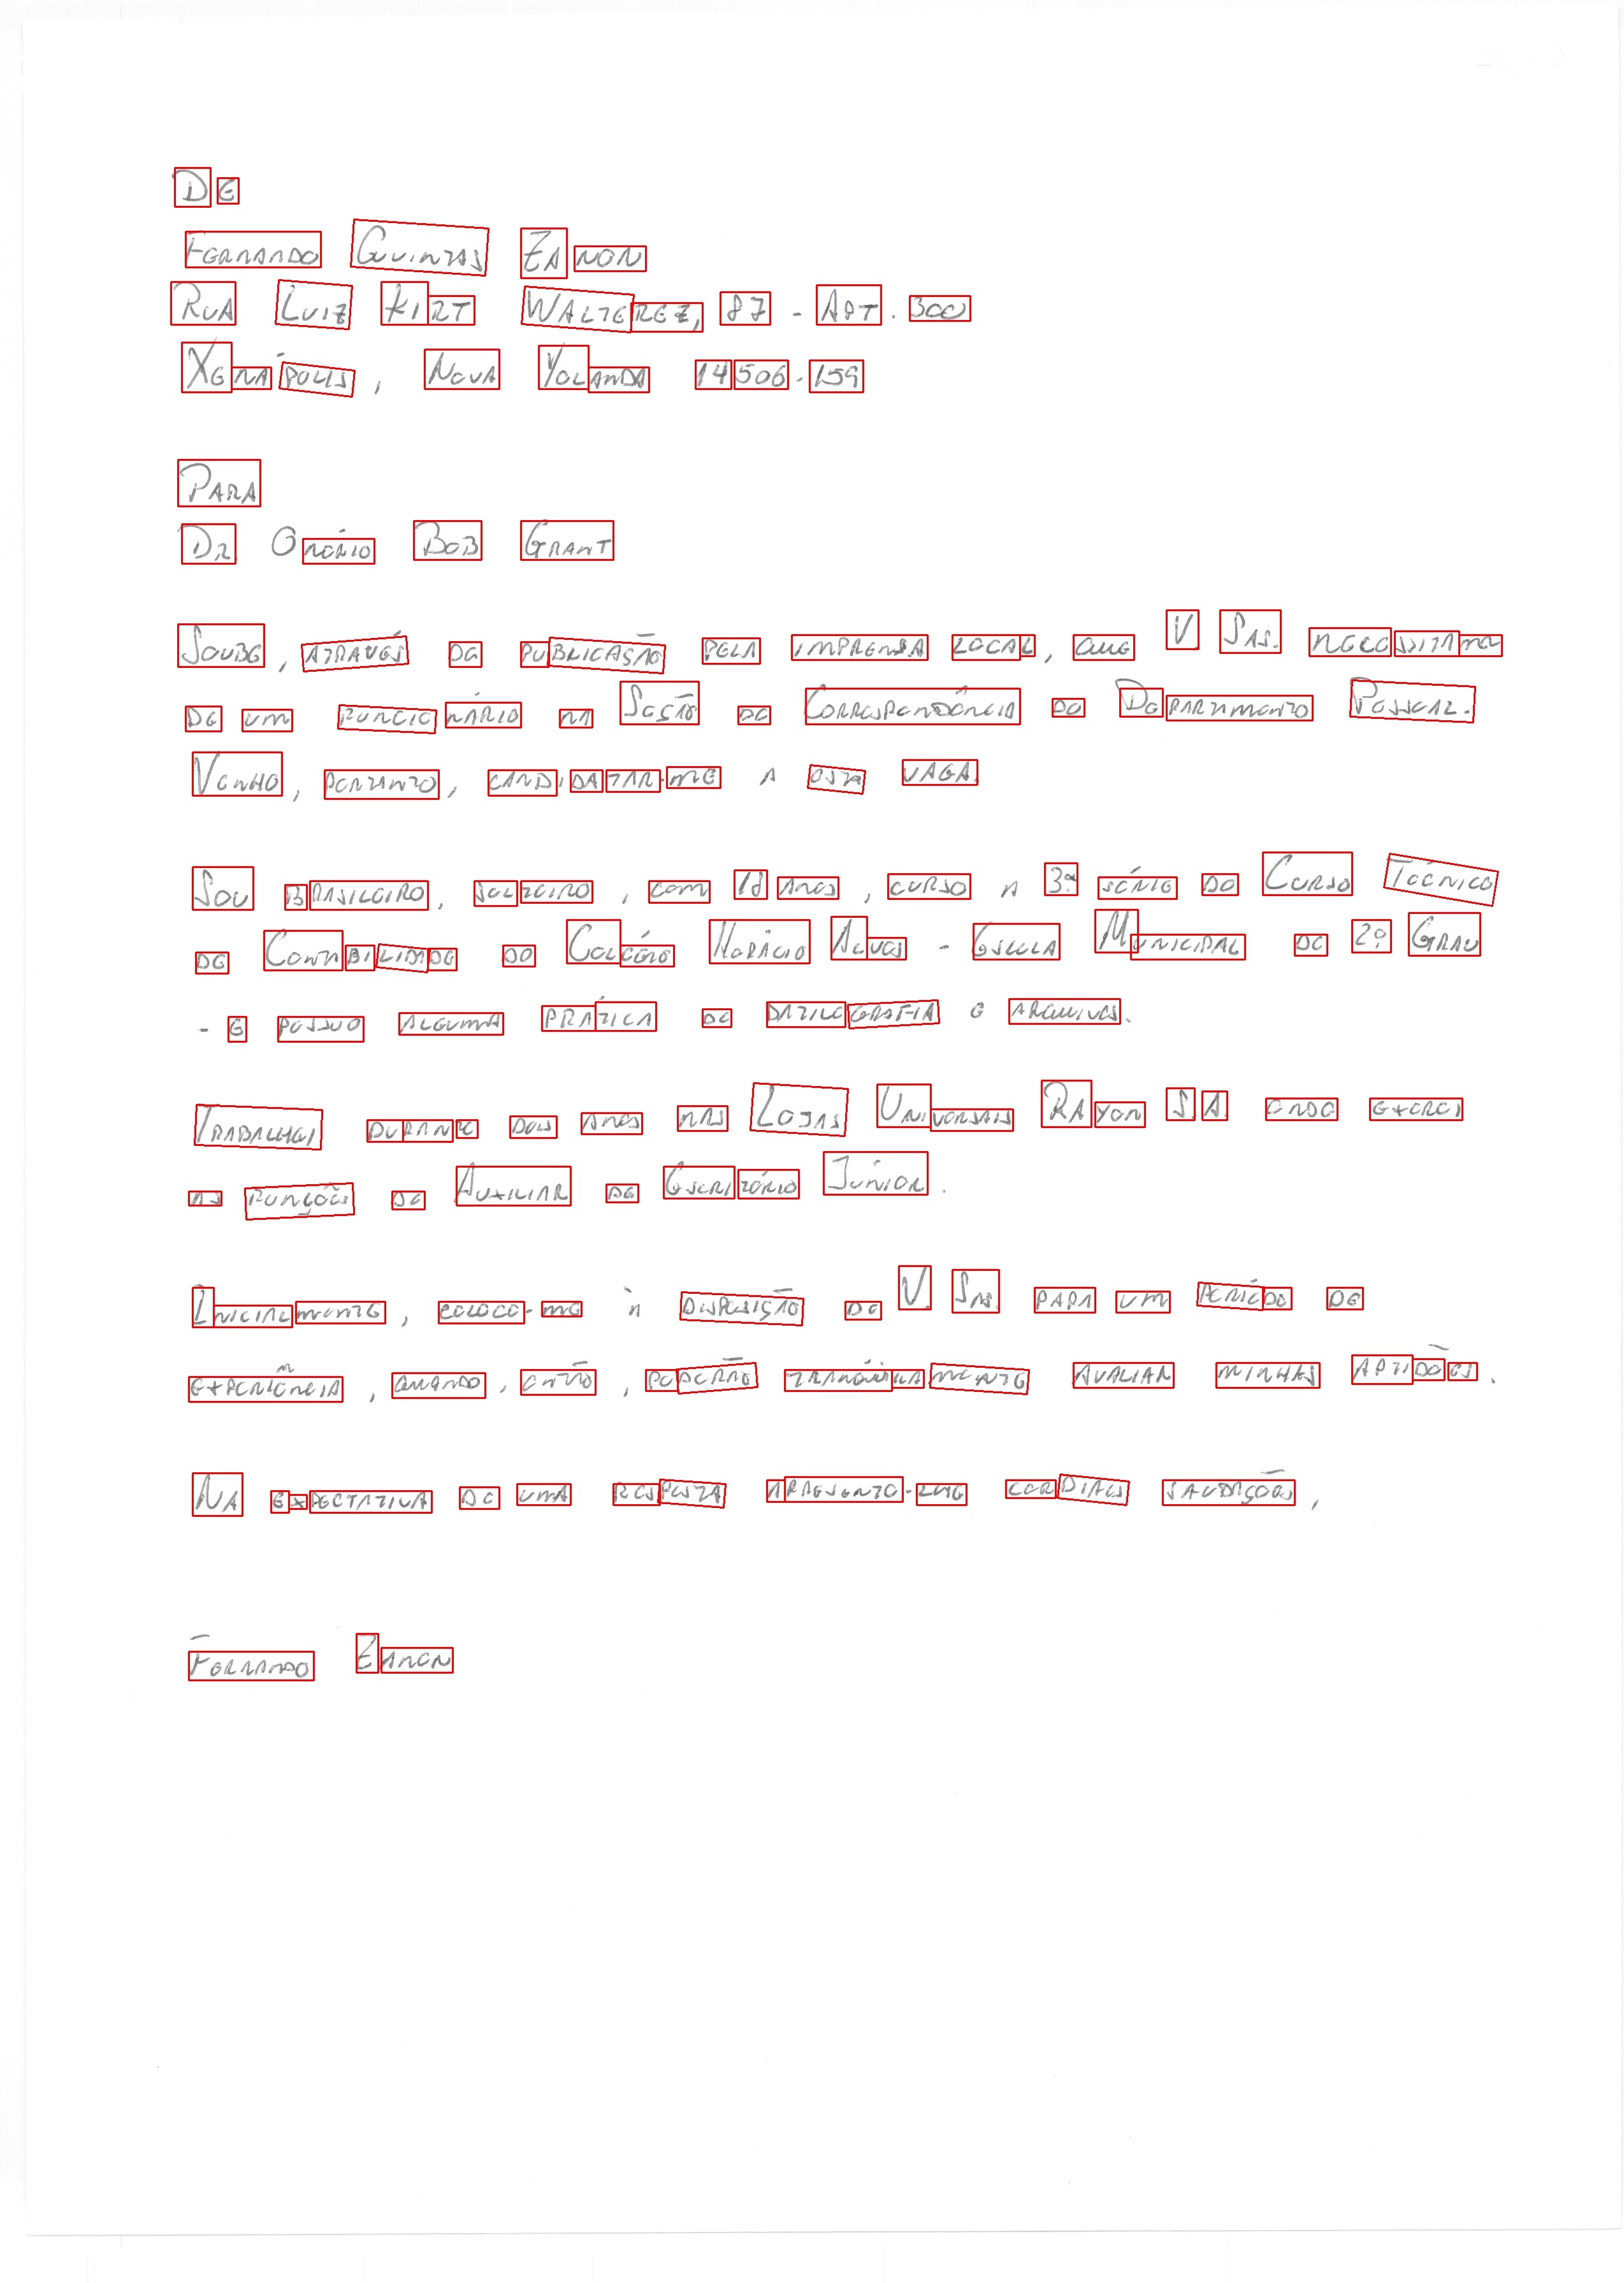 DE
FERNANDO GUINTAS ZANON
RUA LUIZ KIRT WALTEREZ, 87 - APT. 300
XENÁPOLIS, NOVA YOLANDA 14506-159
PARA
DR ONÓRIO BOB GRANT
SOUBE, ATRAVÉS DE PUBLICAÇÃO PELA IMPRENSA LOCAL, QUE V SAS. NECESSITAM
DE UM FUNCIONÁRIO NA SEÇÃO DE CORRESPONDÊNCIA DO DEPARTAMENTO PESSOAL.
VENHO, PORTANTO, CANDIDATAR-ME A ESTA VAGA.
SOU BRASILEIRO, SOLTEIRO, COM 18 ANOS, CURSO A 3ª SÉRIE DO CURSO TÉCNICO
DE CONTABILIDADE DO COLÉGIO HORÁCIO ALVES - ESCOLA MUNICIPAL DE 2º GRAU
- E POSSUO ALGUMA PRÁTICA DE DATILOGRAFIA E ARQUIVOS.
TRABALHEI DURANTE DOIS ANOS NAS LOJAS UNIVERSAIS RAYON S.A. ONDE EXERCI
AS FUNÇÕES DE AUXILIAR DE ESCRITÓRIO JÚNIOR.
INICIALMENTE, COLOCO-ME À DISPOSIÇÃO DE V. SAS. PARA UM PERÍODO DE
EXPERIÊNCIA, QUANDO, ENTÃO, PODERÃO TRANQUILAMENTE AVALIAR MINHAS APTIDÕES.
NA EXPECTATIVA DE UMA RESPOSTA APRESENTO-LHE CORDIAIS SAUDAÇÕES,
FERNANDO ZANON